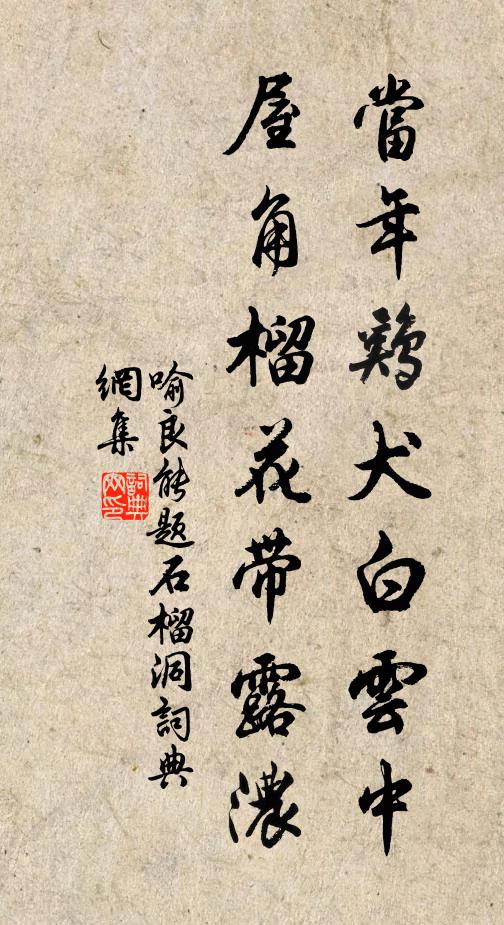 當年鷄犬白雲中
屋角榴花帶露濃
喻良能題石榴洞詞典
網集
詞典
网印